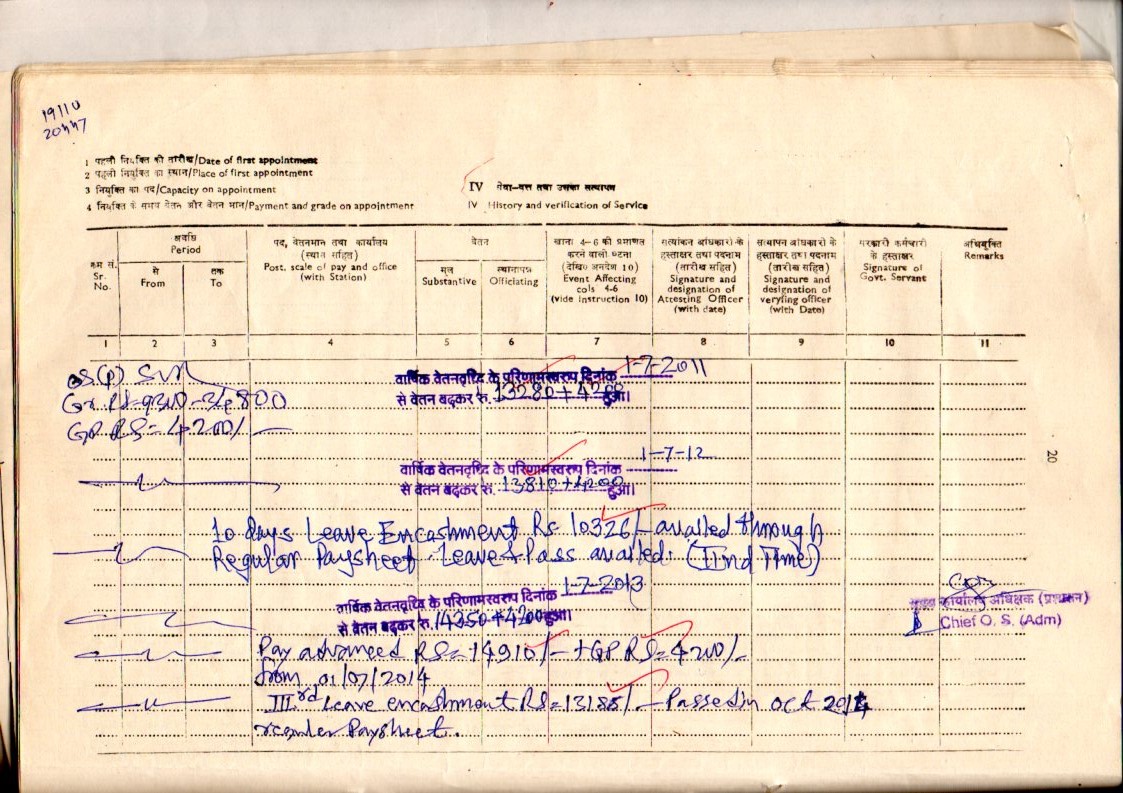 19110
1 पहली नियुक्ति की तारीख/Date of first appointment
2 पहली नियुक्ति का स्थान/Place of first appointment
3 नियुक्ति का पद/Capacity on appointment
4 नियुक्ति के समय वेतन और वेतन मान/Payment and grade on appointment
IV सेवा-वृत्त तथा उसका सत्यापन
IV History and verification of Service
क्रम सं.
Sr.
No.
अवधि
Period
से
From
तक
To
पद, वेतनमान तथा कार्यालय
(स्थान सहित)
Post, scale of pay and office
(with Station)
वेतन
मूल
Substantive
स्थानापन्न
Officiating
खाना 4-6 को प्रभावित
करने वाली घटना
(देखिए अनुदेश 10)
Event Affecting
cols 4-6
(vide Instruction 10)
सत्यांकन अधिकारी के
हस्ताक्षर तथा पदनाम
(तारीख सहित)
Signature and
designation of
Attesting Officer
(with date)
सत्यापन अधिकारी के
हस्ताक्षर तथा पदनाम
(तारीख सहित)
Signature and
designation of
veryfing officer
(with Date)
सरकारी कर्मचारी
के हस्ताक्षर
Signature of
Govt. Servant
अभियुक्ति
Remarks
1 2 3 4 5 6 7 8 9 10 11
OS(P) SUR
वार्षिक वेतनवृध्दि के परिणामस्वरुप दिनांक 1-7-2011
Gr. RS=9300-34800
से वेतन बढ़कर रु. 13280+4200 हुआ।
GP RS=4200/-
वार्षिक वेतनवृध्दि के परिणामस्वरुप दिनांक 1-7-12
से वेतन बढ़कर रु. 13810+4200 हुआ।
10 days Leave Encashment Rs 10326/- availed through
Regular Paysheet Leave & Pass availed. (IInd Time)
वार्षिक वेतनवृध्दि के परिणामस्वरुप दिनांक 1-7-2013
से वेतन बढ़कर रु. 14350+4200 हुआ।
मुख्य कार्यालय अधिक्षक (प्रशासन)
Chief O. S. (Adm)
Pay advanced RS=14910/- +GP RS=4200/-
from 01/07/2014
IIIrd Leave encashment RS=13188/- Passed in oct 2014
regular Paysheet.
20